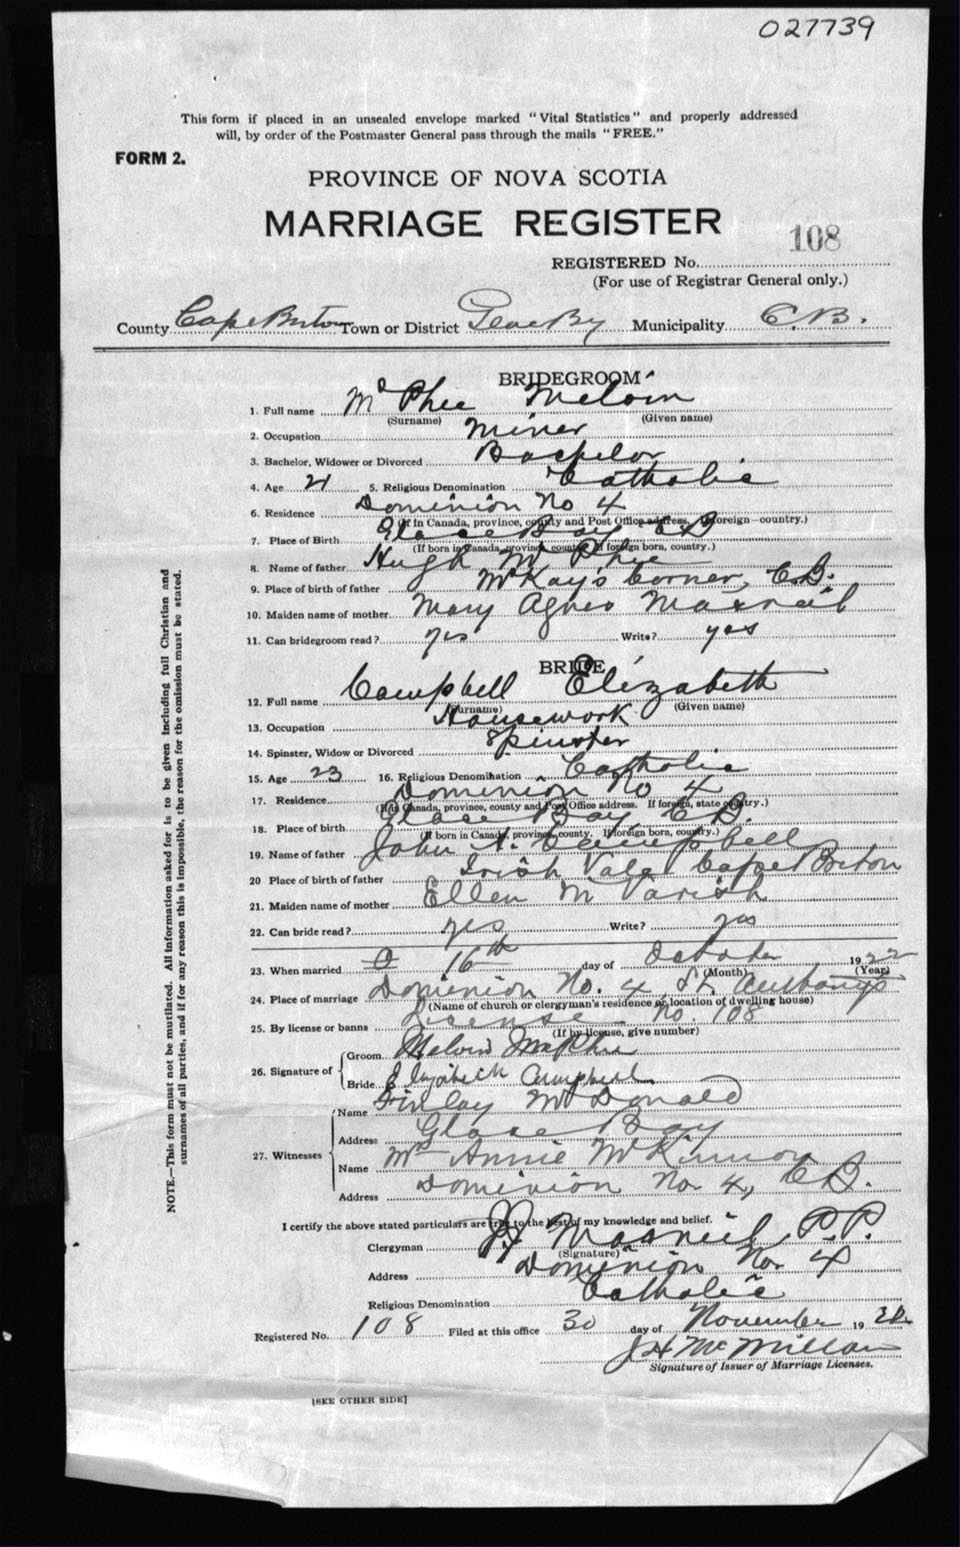 027739
This form if placed in an unsealed envelope marked "Vital Statistics" and properly addressed
will, by order of the Postmaster General pass through the mails "FREE."
FORM 2.
PROVINCE OF NOVA SCOTIA
MARRIAGE REGISTER
108
REGISTERED No.
(For use of Registrar General only.)
County Cape Breton Town or District Glace By Municipality C.B.
BRIDEGROOM
1. Full name Mc Phee Melvin
(Surname) (Given name)
2. Occupation Miner
3. Bachelor, Widower or Divorced Bachelor
4. Age 21 5. Religious Denomination Catholic
6. Residence Dominion No 4
(If in Canada, province, county and Post Office address. If foreign—country.)
7. Place of Birth Glace Bay CB
(If born in Canada, province, county. If foreign born, country.)
8. Name of father Hugh Mc Phee
9. Place of birth of father McKay's Corner, C.B.
10. Maiden name of mother Mary Agnes
11. Can bridegroom read? yes Write? yes
BRIDE
12. Full name Campbell Elizabeth
(Surname) (Given name)
13. Occupation Housework
14. Spinster, Widow or Divorced Spinster
15. Age 23 16. Religious Denomination Catholic
17. Residence Dominion No 4
(If in Canada, province, county and Post Office address. If foreign, state country.)
18. Place of birth Glace Bay C.B.
(If born in Canada, province, county. If foreign born, country.)
19. Name of father John A. Campbell
20 Place of birth of father Irish Vale Cape Breton
21. Maiden name of mother Ellen M Parish
22. Can bride read? yes Write? yes
23. When married 16th day of October 1922
(Month) (Year)
24. Place of marriage Dominion No. 4 St.
(Name of church or clergyman's residence or location of dwelling house)
25. By license or banns License No. 108
(If by license, give number)
26. Signature of Groom Melvin McPhee
Bride Elizabeth Campbell
27. Witnesses Name Finlay McDonald
Address Glace Bay
Name Mrs Annie McKinnon
Address Dominion No. 4, C.B.
I certify the above stated particulars are true to the best of my knowledge and belief.
Clergyman P.P.
(Signature)
Address Dominion No. 4
Religious Denomination Catholic
Registered No. 108 Filed at this office 30 day of November 1922
J H McMillan
Signature of Issuer of Marriage Licenses.
[SEE OTHER SIDE]
NOTE.—This form must not be mutilated. All information asked for is to be given including full Christian and
surnames of all parties, and if for any reason this is impossible, the reason for the omission must be stated.